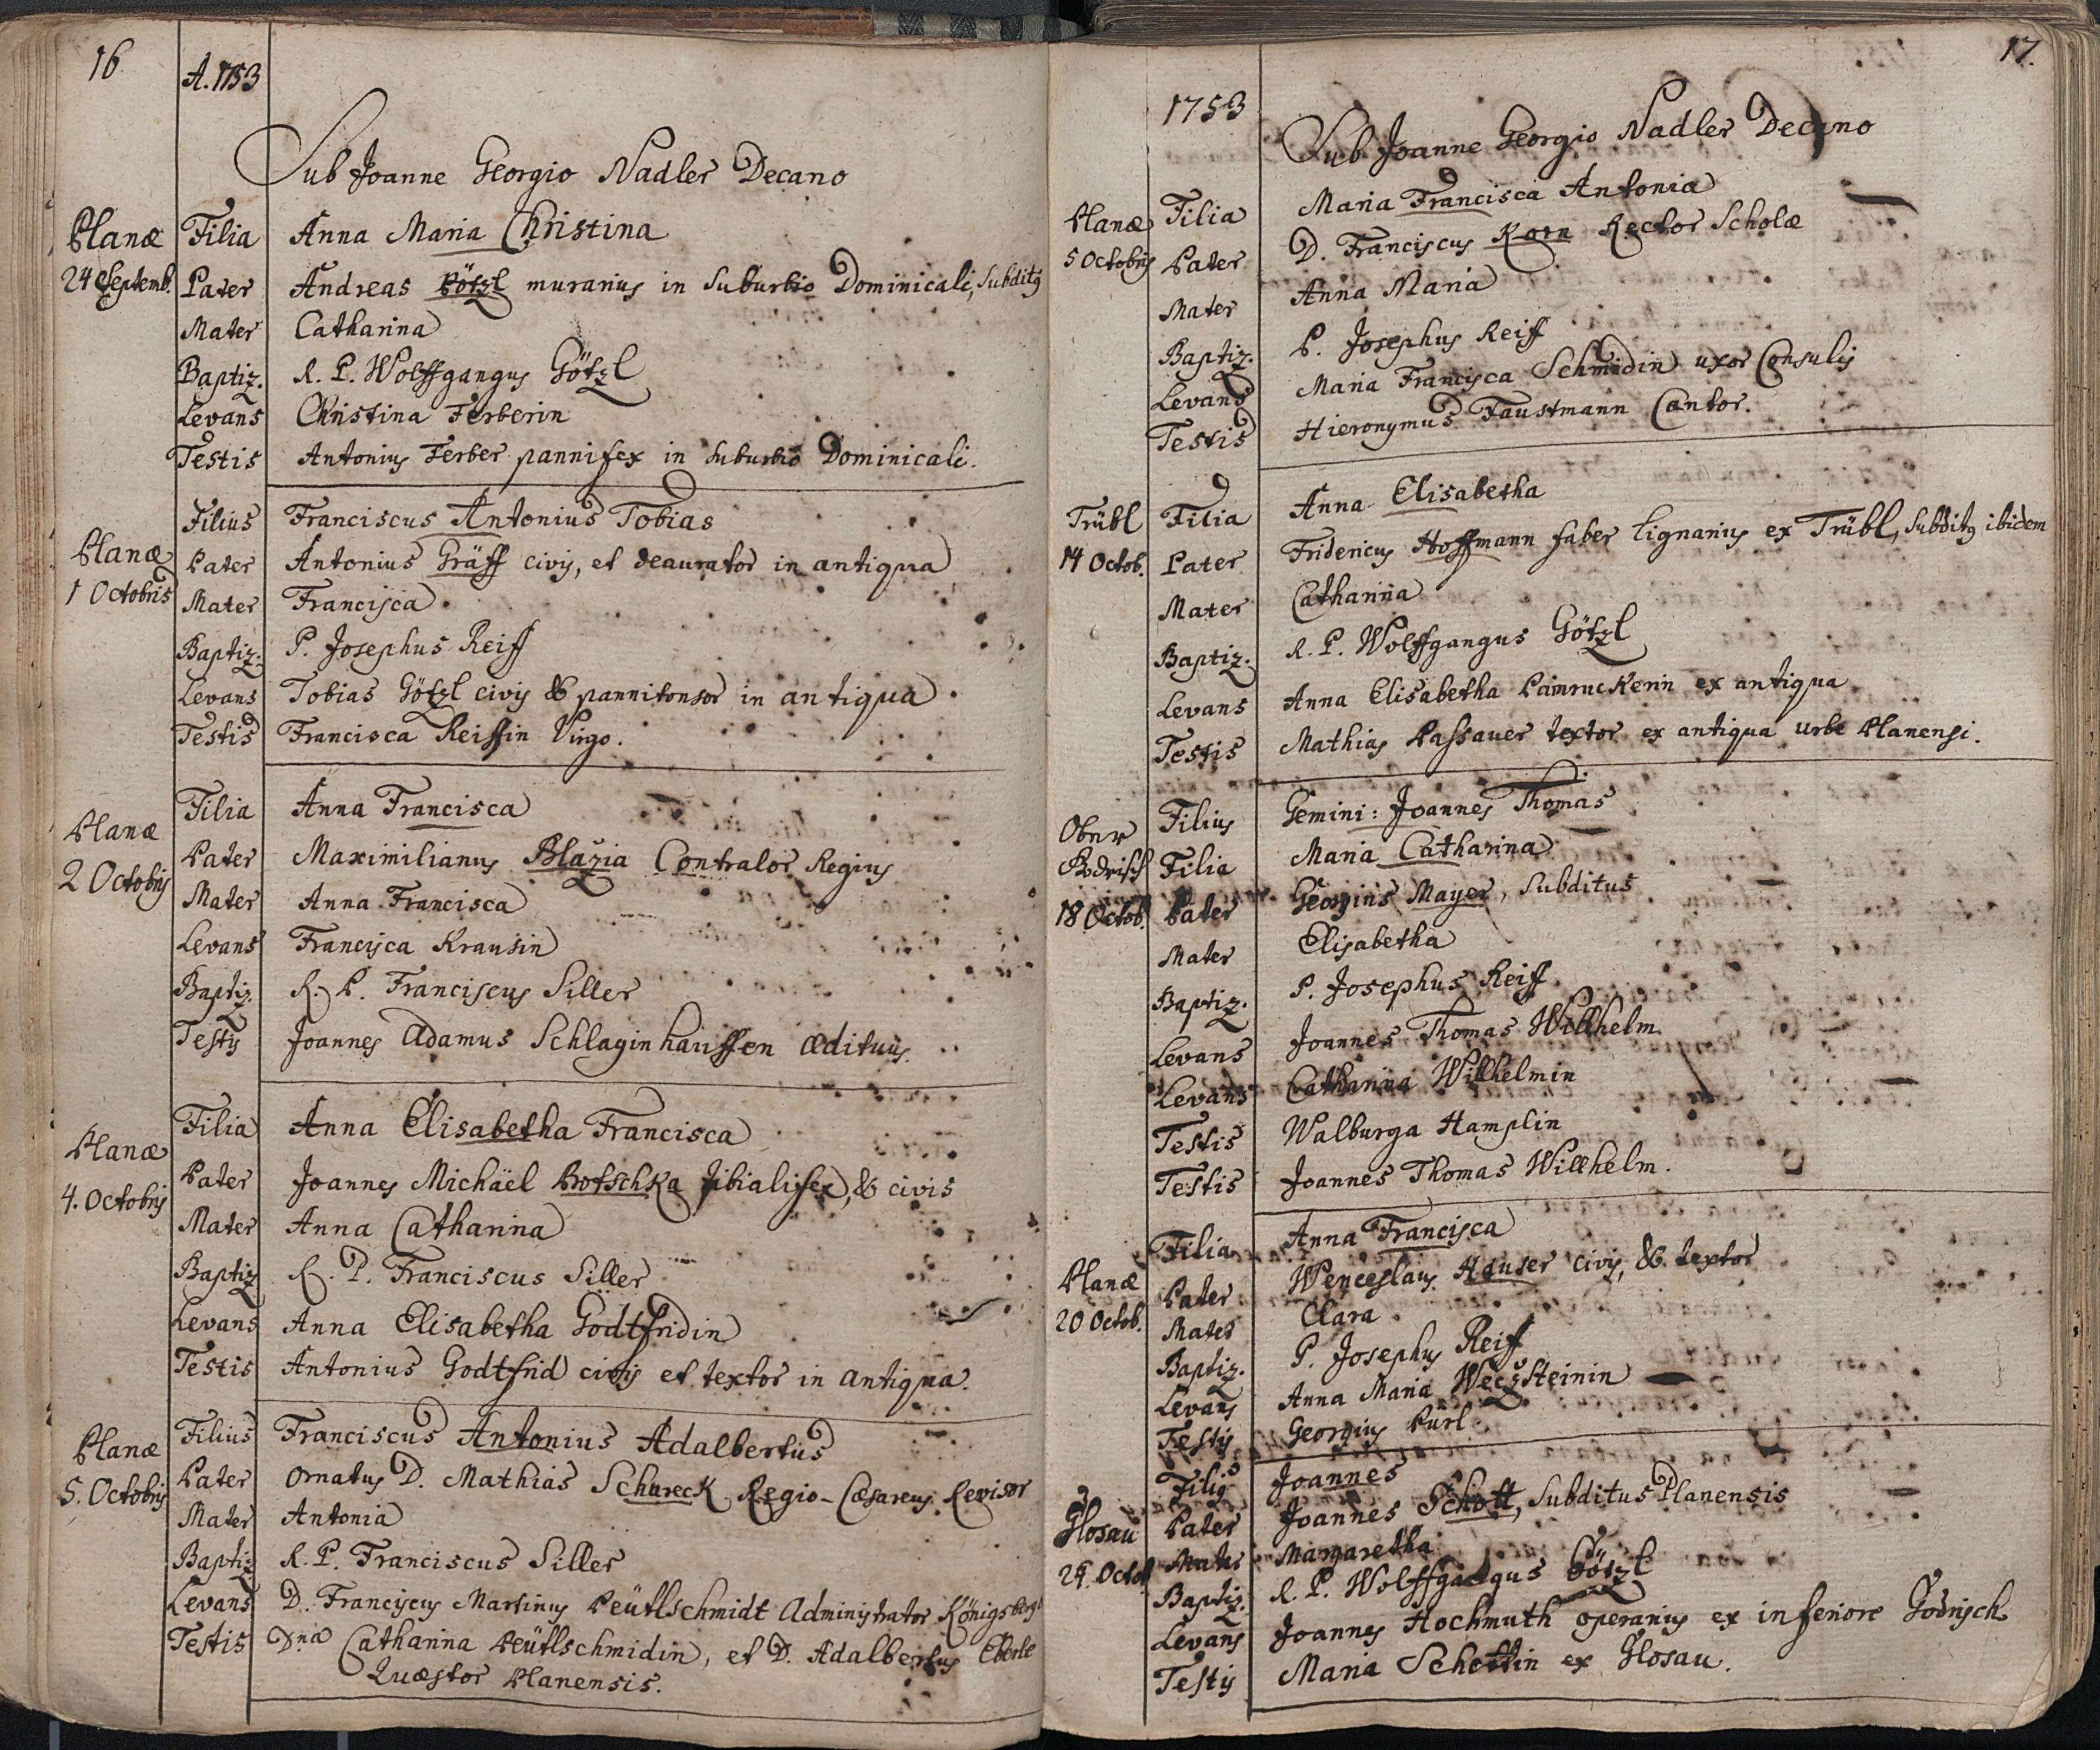 16
A. 1753
Sub Joanne Georgio Nadler Decano
Planæ Filia Anna Maria Christina
24 Septemb. Pater Andreas Götzl murarius in Suburbio Dominicali, Subditq
Mater Catharina
Baptiz. R. P. Wolffgangus Götzl
Levans Christina Ferberin
Testis Antonius Ferber pannifex in suburbio Dominicali.
Filius Franciscus Antonius Tobias
Planæ Pater Antonius Gräff civis, et deaurator in antiqua
1 Octobris Mater Francisca
Baptiz. P. Josephus Reiff
Levans Tobias Götzl civis & pannitonsor in antiqua
Testis Francisca Reiffin Virgo.
Filia Anna Francisca
Planæ Pater Maximilianus Blazia Contralor Regius
2 Octobris Mater Anna Francisca
Levans Francisca Krausin
Baptiz. R. P. Franciscus Siller
Testis Joannes Adamus Schlaginhauffen ædituus.
Filia Anna Elisabetha Francisca
Planæ Pater Joannes Michaël Brotschka tibialifex, & civis
4. Octobris Mater Anna Catharina
Baptiz R. P. Franciscus Siller
Levans Anna Elisabetha Godtfridin
Testis Antonius Godtfrid civis et textor in antiqua.
Filius Franciscus Antonius Adalbertus
Planæ Pater Ornatus D. Mathias Schureck Regio-Cæsareus Revisor
5. Octobris Mater Antonia
Baptiz R. P. Franciscus Siller
Levans D. Franciscus Martinus Peütlschmidt Administrator Königsberg
Testis Dna Catharina Peütlschmidin, et D. Adalbertus Eberle
Quæstor Planensis.
17.
1753
Sub Joanne Georgio Nadler Decano
Planæ Filia Maria Francisca Antonia
5 Octobris Pater D. Franciscus Korn Rector Scholæ
Mater Anna Maria
Baptiz. P. Josephus Reiff
Levans Maria Francisca Schmidin uxor Consulis
Testis Hieronymus Faustmann Cantor.
Trübl Filia Anna Elisabetha
14 Octob. Pater Fridericus Hoffmann faber lignarius ex Trübl, Subditq ibidem
Mater Catharina
Baptiz. R. P. Wolffgangus Götzl
Levans Anna Elisabetha Pamruckerin ex antiqua
Testis Mathias Passauer textor ex antiqua urbe Planensi.
Ober Filius Gemini: Joannes Thomas
Godrisch Filia Maria Catharina
18 Octob. Pater Georgius Mayer, Subditus
Mater Elisabetha
Baptiz. P. Josephus Reiff
Levans Joannes Thomas Willhelm
Levans Catharina Willhelmin
Testis Walburga Hamplin
Testis Joannes Thomas Willhelm.
Filia Anna Francisca
Planæ Pater Wenceslaus Hauser civis, & textor
20 Octob. Mater Clara
Baptiz. P. Josephus Reiff
Levans Anna Maria Weczsteinin
Testis Georgius Pürl
Filiq Joannes
Glosau Pater Joannes Schott, Subditus Planensis
24. Octob Mater Margaretha
Baptiz. R. P. Wolffgangus Götzl
Levans Joannes Hochmuth operarius ex inferiore Godrisch
Testis Maria Schottin ex Glosau.